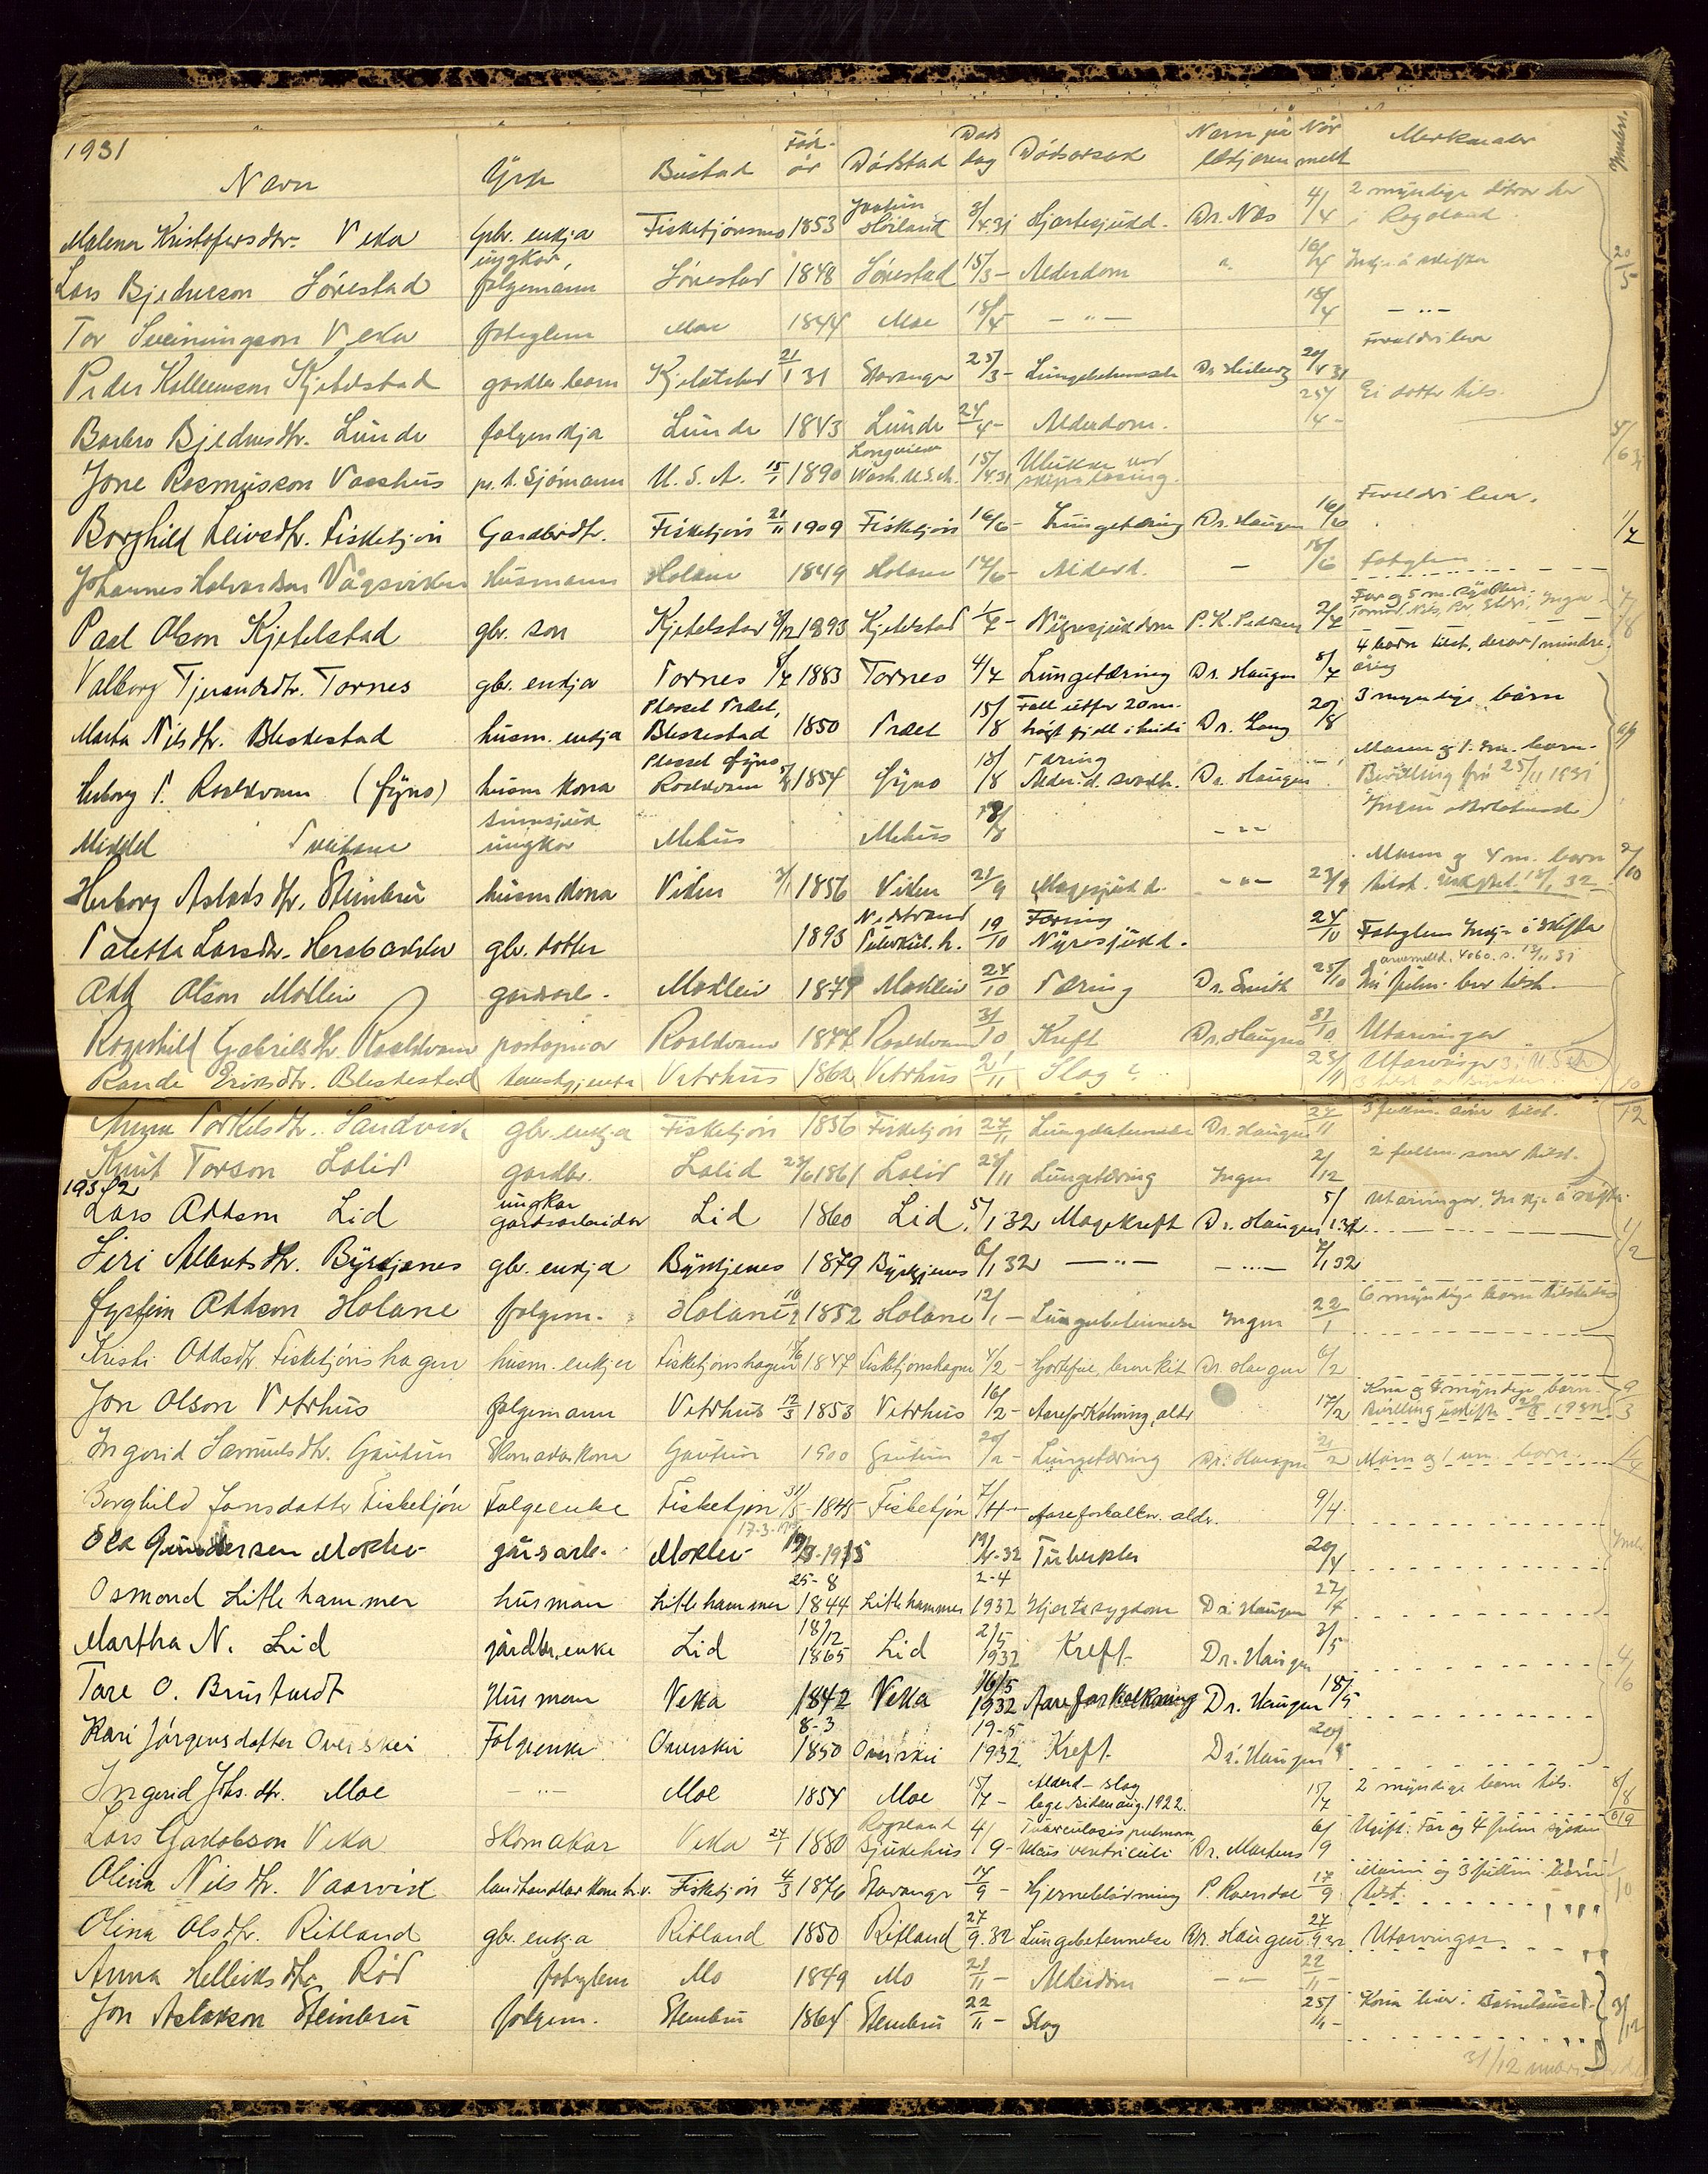 1931
Navn Yrke Bustad Fødeår Dødstad Døds dag Dødsorsak Namn på lækjaren Når meldt Merknader Innber.
Malena Kristofersdtr. Veka gbr. enkja Fisketjønsmo 1853 Jøsheim Høiland 3/4 31 Hjartesjukd. Dr. Næs 4/4 2 myndige døtrar her i Rogaland.
Lars Bjedneson Sørestad ungkar, folgemann Sørestad 1848 Sørestad 15/3 - Alderdom 16/4 Inkje å skifta 20/5
Tor Sveinungson Veka fatiglem Moe 1844 Moe 18/4 - " - 18/4 - " -
Peder Kolbeinson Kjetelstad gardbr. barn Kjetelstad 21/1 31 Stavanger 25/3 - Lungebetennelse Dr. 20/4 31 Foreldri lever
Barbro Bjednesdtr. Lunde folgenkja Lunde 1843 Lunde 24/4 - Alderdom. 25/4 - Ei dotter tils.
Jone Rasmusson Vaashus pr. t. Sjømann U.S.A. 15/1 1890 Longview Wash. U.S.A. 15/4 31 Ulukke ved skipslosing. 5/6 31
Borghild Leivsdtr. Fisketjøn Gardbrdtr. Fisketjøn 21/11 1909 Fisketjøn 16/6 - Lungetæring Dr. Haugen 16/6 Foreldri lever. 1/7
Johannes Halvardson Vågsviken Husmann Holane 1849 Holane 17/6 - Alderd. - 18/6 Fatiglem
Paal Olson Kjetelstad gbr. son Kjetelstad 2/12 1893 Kjetelstad 1/7 - Nyresjukdom P. K. Pedersen 2/7 Far og 5 m. sysken. 7/8
Valborg Tjerandsdtr. Tornes gbr. enkja Tornes 8/4 1883 Tornes 4/7 Lungetæring Dr. Haugen 8/7 4 born tilst, derav 1 mindreåring
Marta Nilsdtr. Bleskestad husm. enkja Plasset Træet, Bleskestad 1850 Træet 15/8 Fall utfor 20 m. høgt fjell i heidi Dr. Lang 20/8 3 myndige born
Herborg T. Roaldkvam (Øyno) husm kona Plasset Øyno Roaldkvam 1854 Øyno 18/8 Tæring Alderd. svakh. Dr. Haugen Mann og 1 um. barn. Bevilling frå 25/11 1931
Mikkel Tveitane sinnsjuk ungkar Mehus Mehus 18/8 - " - Ingen
Herborg Aslaksdtr. Steinbru husm kona Viken 1856 Viken 21/9 Magesjukd. - " - 23/9 Mann og 4 m. born tilst. 2/10
Taletta Larsdtr. Hersbakka gbr. dotter 1893 Nedstrand Tuberkul. h. 19/10 Tæring Nyresjukd. 24/10 Fatiglem Inkje å skifta
Odd Olson Mokleiv gardsarb. Mokleiv 1879 Mokleiv 24/10 Tæring Dr. Smith 25/10 Ein fulm. bror tilst.
Ragnhild Gabrielsdtr. Roaldkvam postopnar Roaldkvam 1877 Roaldkvam 31/10 Kreft Dr. Haugen 31/10 Utarvingar
Rande Eriksdtr. Bleskestad tenestgjenta Vetrhus 1862 Vetrhus 21/11 Slag 23/11 Utarvingar
Anna Torkelsdtr. Sandvik gbr. enkja Fisketjøn 1856 Fisketjøn 27/11 Lungebetennelse Dr. Haugen 27/11 3 fullm. born tilst. 12
Knut Torson Lalid gardbr. Lalid 24/6 1861 Lalid 28/11 Lungetæring Ingen 2/12 2 fullm. soner tilst.
1932
Lars Oddson Lid ungkar gardsarbeidar Lid 1860 Lid 5/1 32 Magekreft Dr. Haugen 5/1 32 Utarvingar. Inkje å skifta. 1/2
Siri Albertsdtr. Byrkjenes gbr. enkja Byrkjenes 1879 Byrkjenes 6/1 32 - " - - " - 7/1 32
Øystein Oddson Holane folgem. Holane 10/2 1852 Holane 12/1 - Lungebetennelse Ingen 22/1 6 myndige born tilstades
Kristi Oddsdtr. Fisketjønshagen husm. enkja Fisketjønshagen 1847 Fisketjønshagen 4/2 - Hjartefeil, bronkit Dr. Haugen 6/2
Jon Olson Vetrhus folgemann Vetrhus 12/3 1853 Vetrhus 16/2 - Aareforkalkning, alder 17/2 Kona og 4 myndige born. Bevilling uskifta 1932 9/3
Ingerid Samuelsdtr. Gautun Skomakarkona Gautun 1900 Gautun 20/2 - Lungetæring Dr. Haugen 21/2 Mann og 1 um. barn. 1/4
Borghild Jonsdatter Fisketjøn Folgeenke Fisketjøn 31/5 - 1845 Fisketjøn 7/4 - Aareforkalkn. aldr. 9/4
Ola Gundersen Moklev gårsarb. Moklev 17.3. 1915 19/4-32 Tuberkler 20/4
Osmond Litlehammer husman Litlehammer 25-8 1844 Litlehammer 2-4 1932 Hjertesygdom Dr. Haugen 27/4
Martha N. Lid gårdbr. enke Lid 18/12 1865 Lid 2/5 1932 Kreft Dr. Haugen 3/5 4/6
Tore O. Brustuedt Husman Veka 1842 Veka 16/5 1932 Aareforkalkning Dr. Haugen 18/5
Kari Jörgensdatter Overskei Folgeenke Overskei 8-3 1850 Overskei 19-5 1932 Kreft Dr. Haugen 20/5
Ingerid Johs. dtr. Moe - " - Moe 1854 Moe 15/7 - Alderd - slag lege sidan aug. 1922. 15/7 2 myndige born tils. 8/8
Lars Gardolsson Veka Skomakar Veka 24/1 1880 Rogaland Sjukehus 4/9 - Tuberculosis pulmon. Ulcus ventriculi Dr. Martens 6/9 Ugift: Far og 4 fulm sysken 6/9
Olina Nilsdtr. Vaarvik landhandlarkone Fisketjøn 4/3 1876 Stavanger 14/9 - Hjerneblødning P. Ravndal 17/9 Mann og 3 fullm. born tilst. 1/10
Olina Olsdtr. Ritland gbr. enkja Ritland 1850 Ritland 27/9 32 Lungebetennelse Dr. Haugen 27/9 32 Utarvingar
Anna Helleiksdtr. Rød fatiglem Mo 1849 Mo 21/11 - Alderdom - " - 22/11 -
Jon Aslakson Steinbru folgem. Steinbru 1864 Steinbru 22/11 - Slag 25/11 - Kona lever. Barnlause. 3/12
31/12